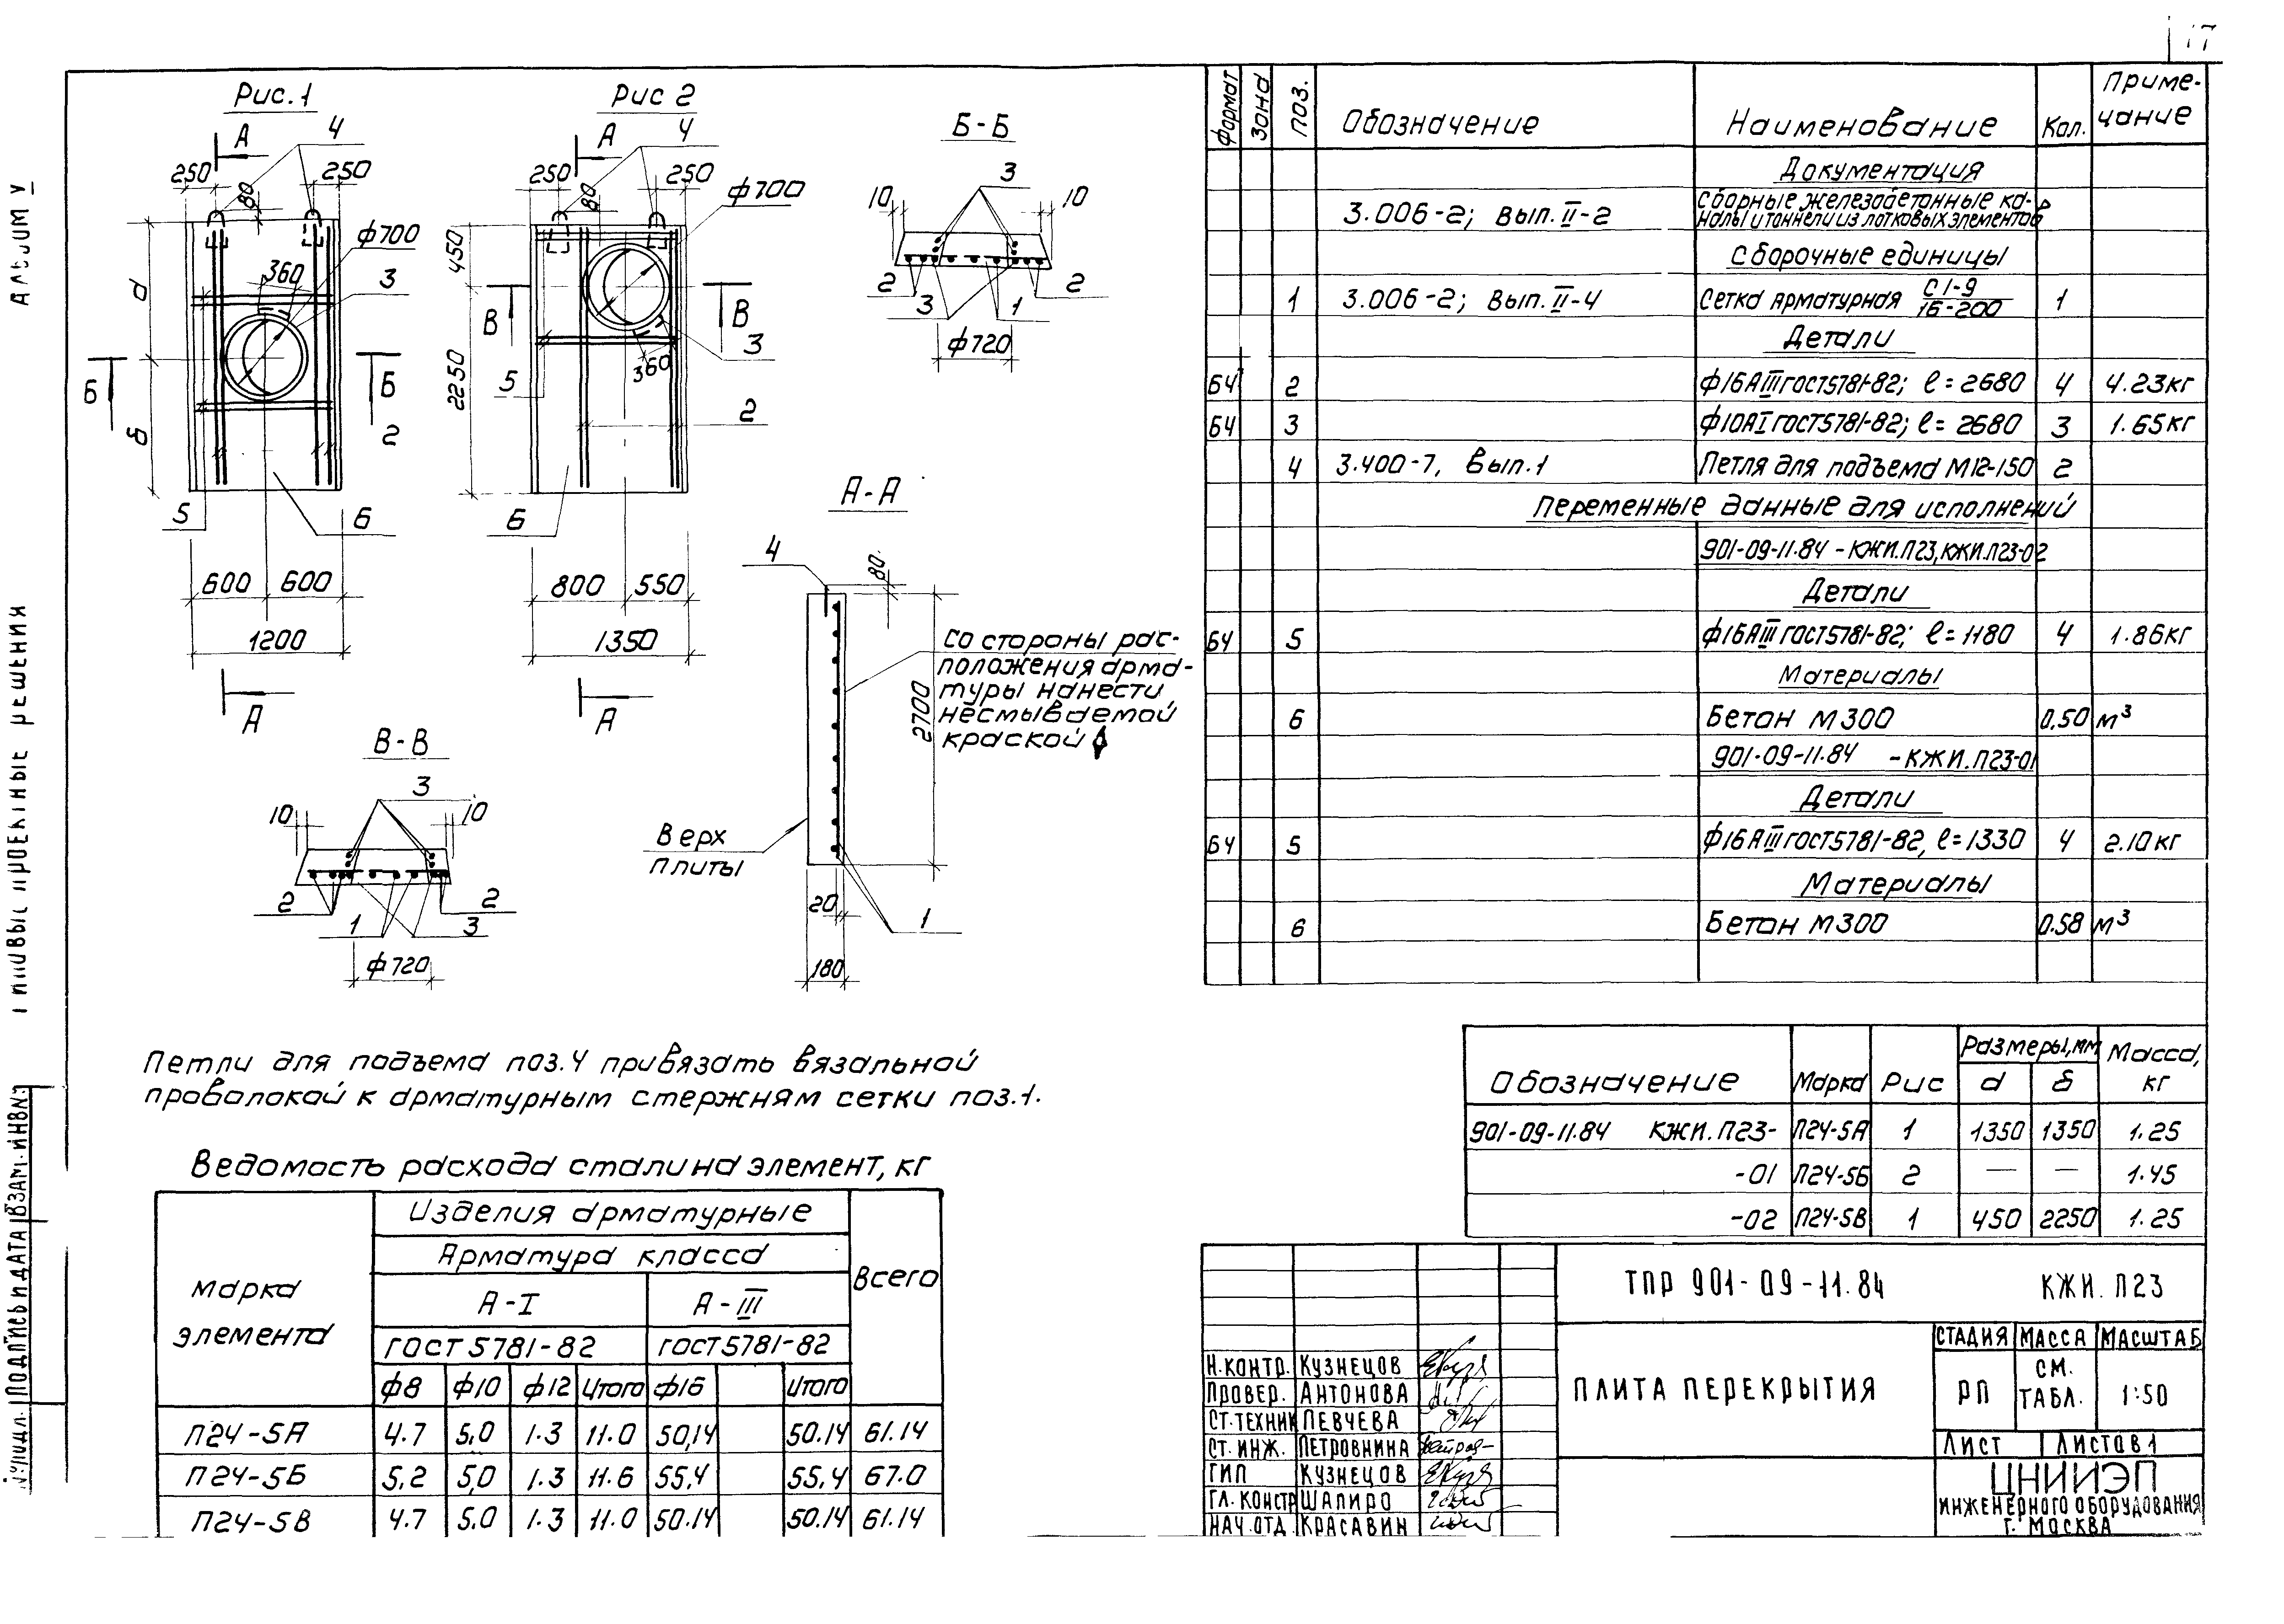 17
Альбом V
Типовые проектные решения
Подпись и дата
Взам. инв №
Рис. 1
А
4
250
80
250
ф700
360
3
а
Б
Б
б
2
5
6
600
600
1200
А
Рис 2
А
4
250
80
250
ф700
450
В
В
3
360
5
2250
2
6
800
550
1350
А
Б-Б
3
10
10
2
3
1
2
ф720
А-А
4
80
2700
Со стороны рас-
положения арма-
туры нанести
несмываемой
краской
Верх
плиты
20
1
180
В-В
3
10
10
2
1
2
3
ф720
Петли для подъема поз.4 привязать вязальной
проволокой к арматурным стержням сетки поз.1.
Ведомость расхода стали на элемент, кг
Марка элемента
Изделия арматурные
Всего
Арматура класса
А-I
А-III
ГОСТ 5781-82
ГОСТ 5781-82
ф8 ф10 ф12 Итого ф16 Итого
П24-5А 4.7 5,0 1.3 11.0 50,14 50.14 61.14
П24-5Б 5,2 5,0 1.3 11.6 55,4 55,4 67.0
П24-5В 4.7 5.0 1.3 11.0 50.14 50.14 61.14
Формат Зона Поз. Обозначение Наименование Кол. Приме-
чание
Документация
3.006-2; Вып. II-2 Сборные железобетонные ка-
налы и тоннели из лотковых элементов
Сборочные единицы
1 3.006-2; Вып. II-4 Сетка арматурная С1-9/16-200 1
Детали
БЧ 2 ф16АIII ГОСТ5781-82; ℓ=2680 4 4.23кг
БЧ 3 ф10АI ГОСТ5781-82; ℓ=2680 3 1.65кг
4 3.400-7, Вып.1 Петля для подъема М12-150 2
Переменные данные для исполнений
901-09-11.84 - КЖИ.П23, КЖИ.П23-02
Детали
БЧ 5 ф16АIII ГОСТ5781-82; ℓ=1180 4 1.86кг
Материалы
6 Бетон М300 0,50 м³
901-09-11.84 -КЖИ.П23-01
Детали
БЧ 5 ф16АIII ГОСТ5781-82, ℓ=1330 4 2.10кг
Материалы
6 Бетон М300 0.58 м³
Обозначение Марка Рис Размеры, мм Масса, кг
а б
901-09-11.84 КЖИ.П23- П24-5А 1 1350 1350 1.25
-01 П24-5Б 2 — — 1.45
-02 П24-5В 1 450 2250 1.25
ТПР 901-09-11.84 КЖИ. П23
Плита перекрытия
Стадия Масса Масштаб
РП см. табл. 1:50
Лист Листов 1
ЦНИИЭП
инженерного оборудования
г. Москва
Н.контр. Кузнецов
Провер. Антонова
Ст.техник Певчева
Ст. инж. Петровнина
ГИП Кузнецов
Гл. констр Шапиро
Нач.отд. Красавин